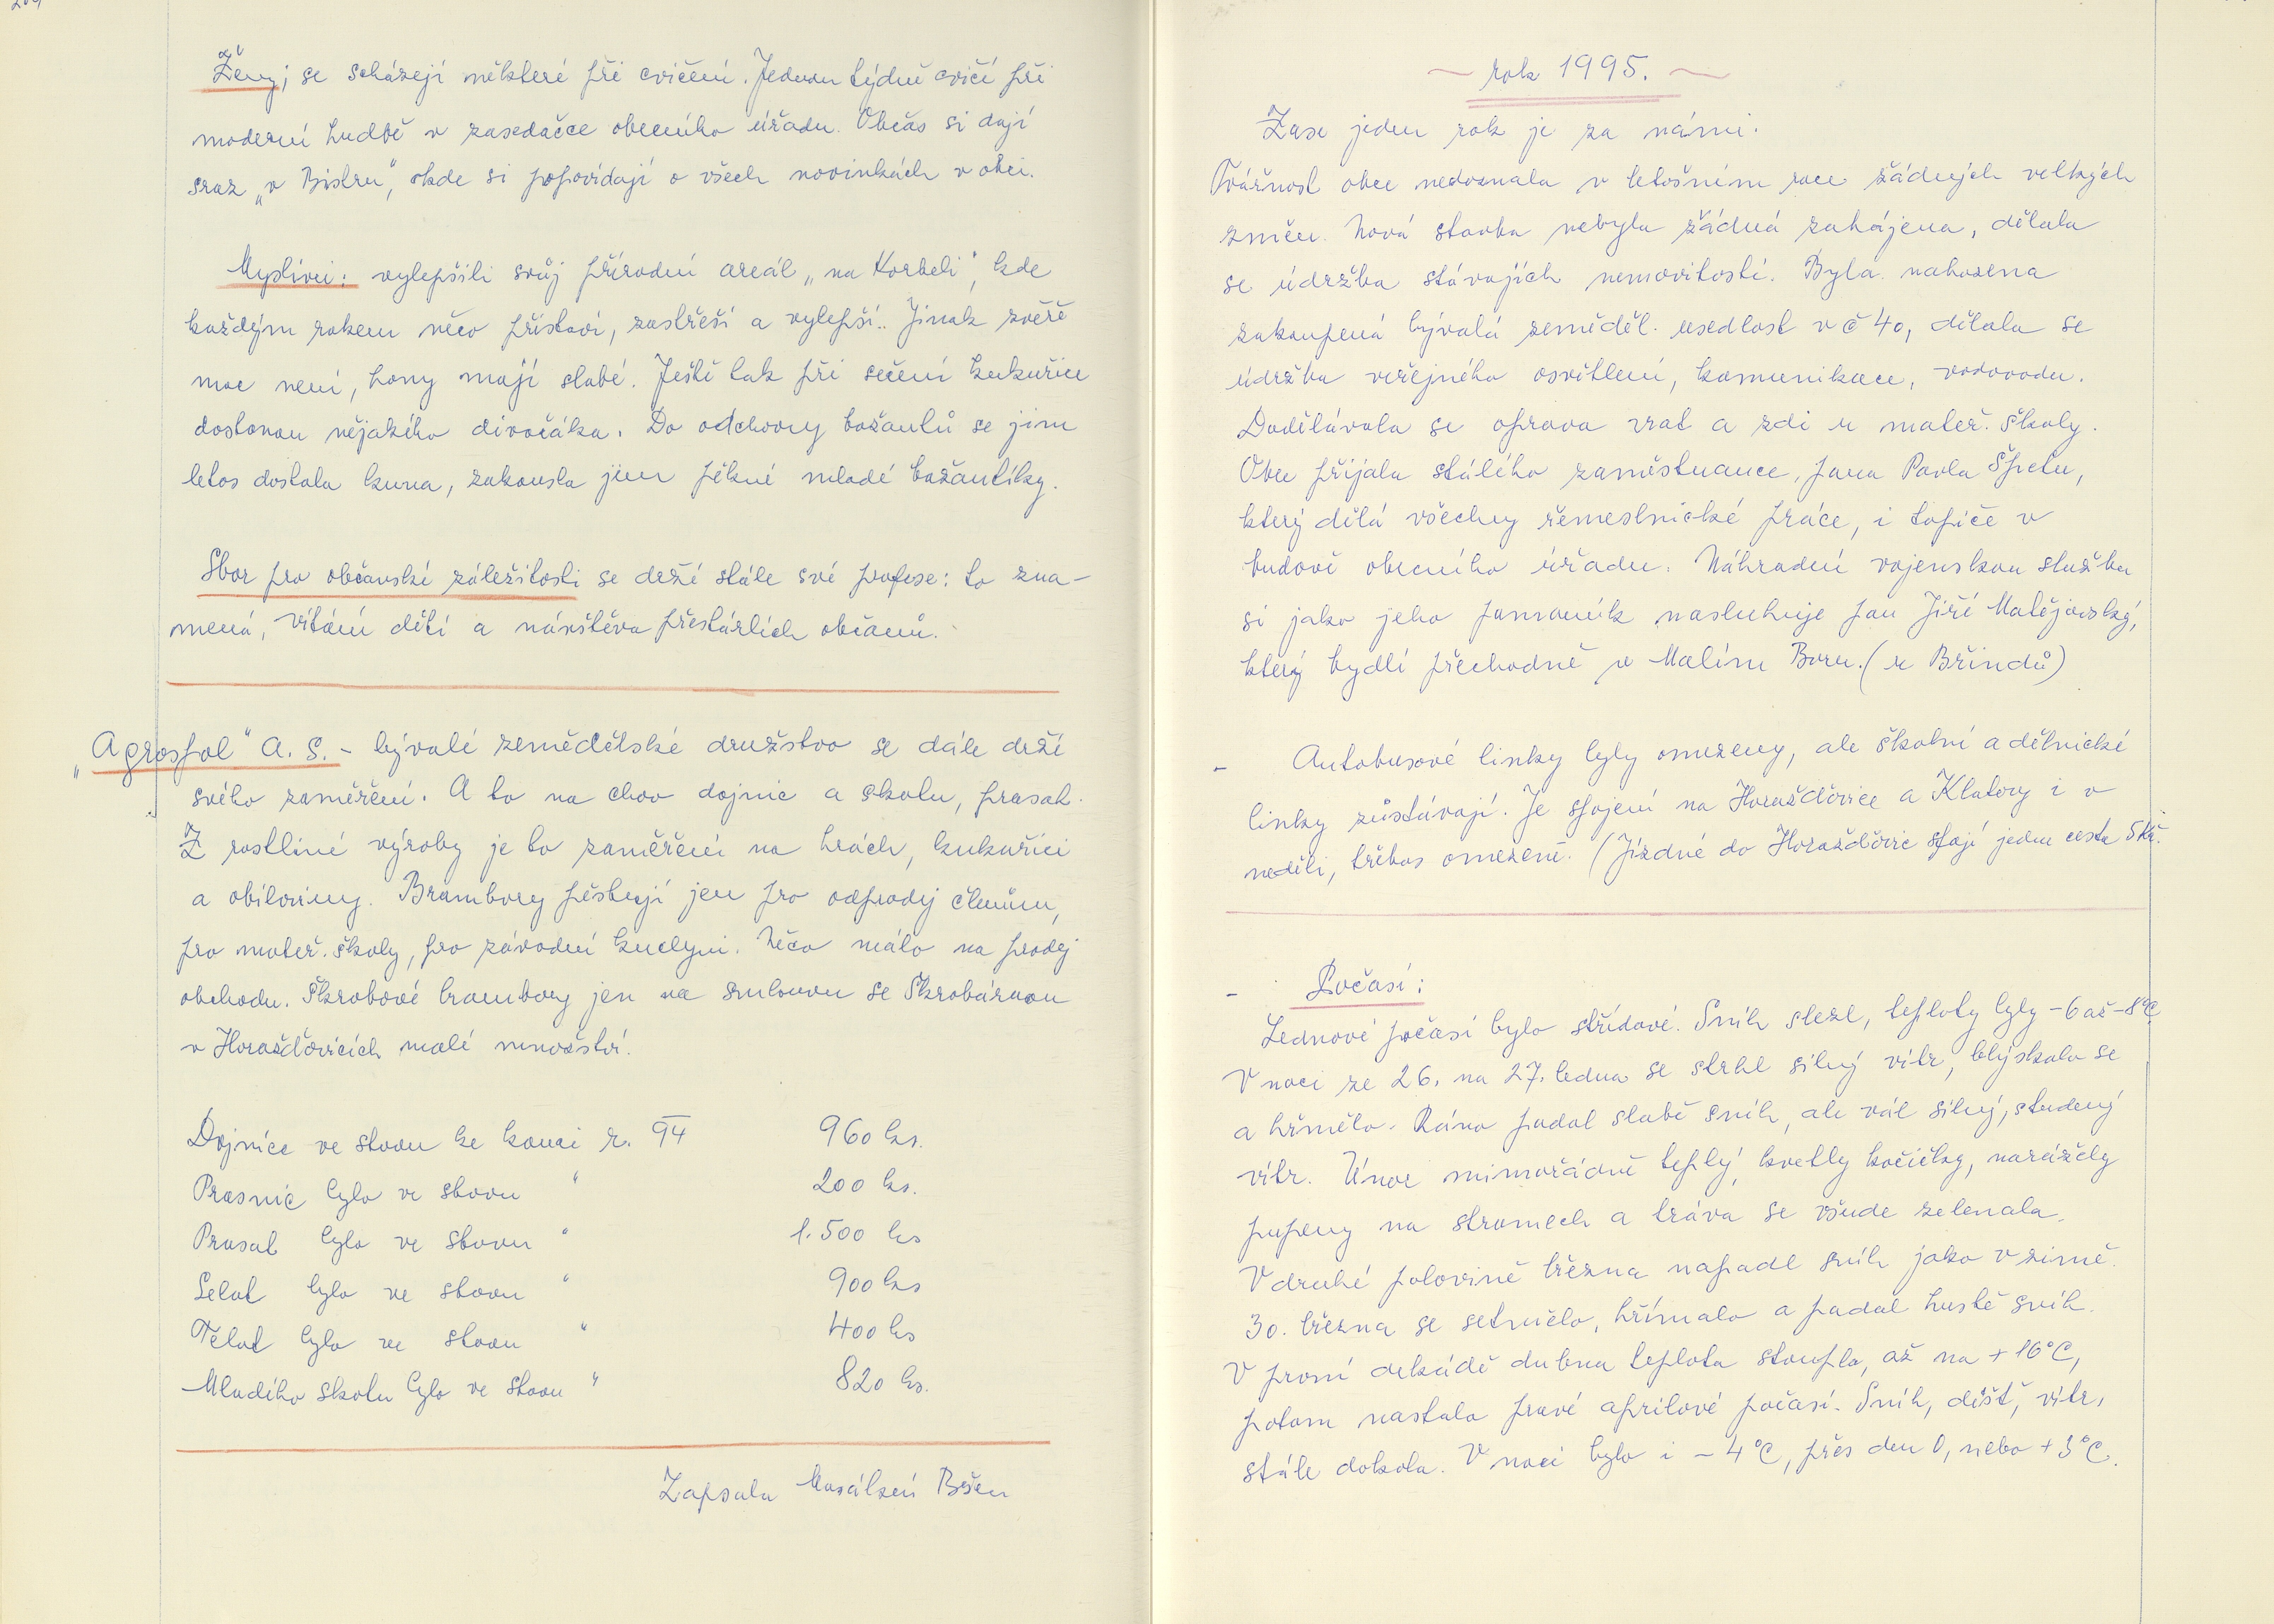 Ženy; se scházejí některé při cvičení. Jednou týdně cvičí při
moderní hudbě v zasedačce obecního úřadu. Občas si dají
sraz „v Bistru", kde si popovídají o všech novinkách v obci.
Myslivci: vylepšili svůj přírodní areál „na Korbeli", kde
každým rokem něco přistaví, zastřeší a vylepší.. Jinak zvěře
moc není, hony mají slabé. Ještě tak při sečení kukuřice
dostanou nějakého divočáka. Do odchovny bažantů se jim
letos dostala kuna, zakousla jim pěkné mladé bažantíky.
Sbor pro občanské záležitosti se drží stále své profese: to zna-
mená, vítání dětí a návštěva přestárlích občanů.
„Agrospol" A. S. - bývalé zemědělské družstvo se dále drží
svého zaměření. A to na chov dojnic a skotu, prasat.
Z rostliné výroby je to zaměření na hrách, kukuřici
a obiloviny. Brambory pěstují jen pro odprodej členům,
pro mateř. školy, pro závodní kuchyni. Něco málo na prodej
obchodu. Škrobové brambory jen na smlouvu se Škrobárnou
v Horažďovicích malé množství.
Dojnice ve stavu ke konci r. 94 960 ks.
Prasnic bylo ve stavu " 200 ks.
Prasat bylo ve stavu " 1.500 ks
Selat bylo ve stavu " 900 ks
Telat bylo ve stavu " 400 ks
Mladého skotu bylo ve stavu " 820 ks.
Zapsala
~ rok 1995. ~
Zase jeden rok je za námi.
Tvářnost obce nedoznala v letošním roce žádných velkých
změn. Nová stavba nebyla žádná zahájena, dělala
se údržba stávajích nemovitostí. Byla nahozena
zakoupená bývalá zeměděl. usedlost v č 40, dělala se
údržba veřejného osvětlení, komunikace, vodovodu.
Dodělávala se oprava vrat a zdi u mateř. školy.
Obec přijala stálého zaměstnance, pana Pavla Špetu,
který dělá všechny řemeslnické práce, i topiče v
budově obecního úřadu. Náhradní vojenskou službu
si jako jeho pomocník nasluhuje pan Jiří Matějovský,
který bydlí přechodně v Malém Boru. (u Břindů)
- Autobusové linky byly omezeny, ale školní a dělnické
linky zůstávají. Je spojení na Horažďovice a Klatovy i v
neděli, třebas omezené. (Jízdné do Horažďovic stojí jedna cesta 5 Kč.
- Počasí:
Lednové počasí bylo střídavé. Sníh slezl, teploty byly -6 až -8°C
V noci ze 26. na 27. ledna se strhl silný vítr, blýskalo se
a hřmělo. Ráno padal slabě sníh, ale vál silný, studený
vítr. Únor mimořádně teplý, kvetly kočičky, narážely
pupeny na stromech a tráva se všude zelenala.
V druhé polovině března napadl sníh jako v zimě.
30. března se setmělo, hřímalo a padal hustě sníh.
V první dekádě dubna teplota stoupla, až na +16°C,
potom nastalo pravé aprilové počasí. Sníh, déšť, vítr,
stále dokola. V noci bylo i -4°C, přes den 0, nebo +3°C.